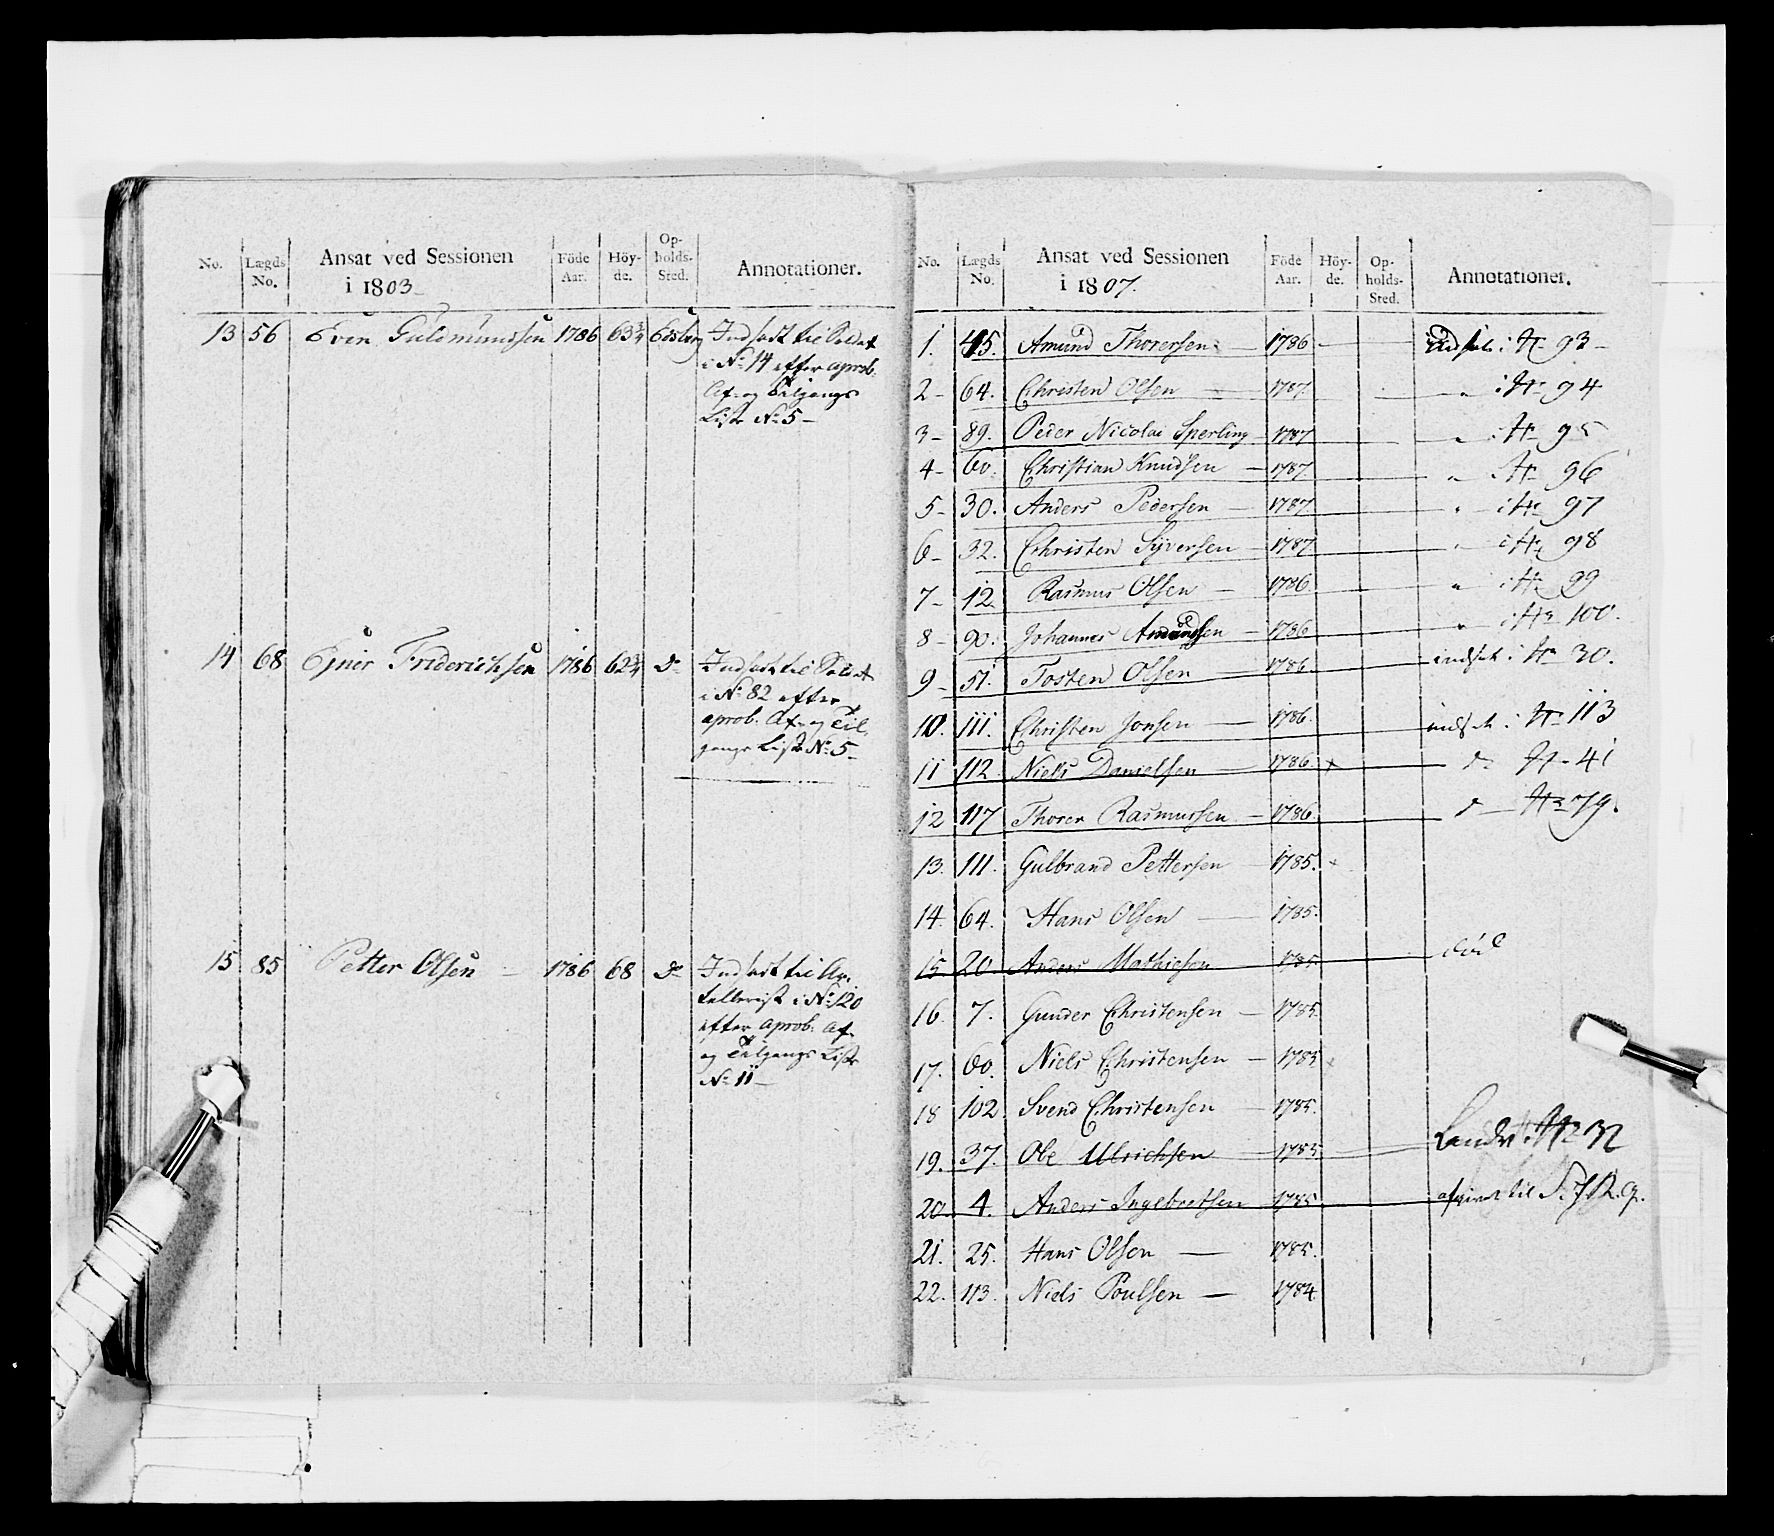 No. Lægds No. Ansat ved Sessionen i 1803 Föde Aar. Höy-de. Op-holds-Sted. Annotationer.
13 56 Even Guldmundsen 1786 63¾ Edsberg Indsadt til Soldat
i No 14 efter aprob.
Af- og Tilgangs
Liste No 5 –
14 68 Ejner Friderichsen 1786 62¾ do Indsadt til Soldat
i No 82 efter
aprob. Af- og Til-
gangs Liste No 5 –
15 85 Petter Olsen – 1786 68 do Indsadt til Ar-
tellerist i No 120
efter aprob. Af-
og Tilgangs Liste
No 11 –
No. Lægds No. Ansat ved Sessionen i 1807. Föde Aar. Höy-de. Op-holds-Sted. Annotationer.
1. 45. Amund Thorersen – 1786 – indsat i No 93 –
2 – 64. Christen Olsen – 1787. " i No 94
3 – 89. Peder Nicolai Sperling – 1787 " i No 95
4 – 60. Christian Knudsen – 1787. " i No 96
5 – 30. Anders Pedersen – 1787 " i No 97
6 – 32. Christen Syversen – 1787 " i No 98
7 – 12. Rasmus Olsen – 1786 " i No 99
8 – 90. Johannes Amundsen – 1786 " i No 100.
9 – 51. Tosten Olsen – 1786 indsat i No 30.
10. 111. Christen Jonsen – 1786. indsat i No 113
11 112. Niels Danielsen – 1786. + do No 41
12 117 Thorer Rasmussen – 1786. do No 79.
13. 111. Gulbrand Pettersen – 1785. +
14. 64. Hans Olsen – 1785.
15 20. Anders Mathiesen 1785. död
16. 7. Gunder Christensen – 1785.
17. 60. Niels Christensen – 1785 +
18 102 Svend Christensen – 1785.
19. 37. Ole Ulrichsen – 1785. Landv. No 32
20. 4. Anders Ingebretsen – 1785. afgivet til
21. 25. Hans Olsen – 1785.
22. 113. Niels Poulsen – 1784.